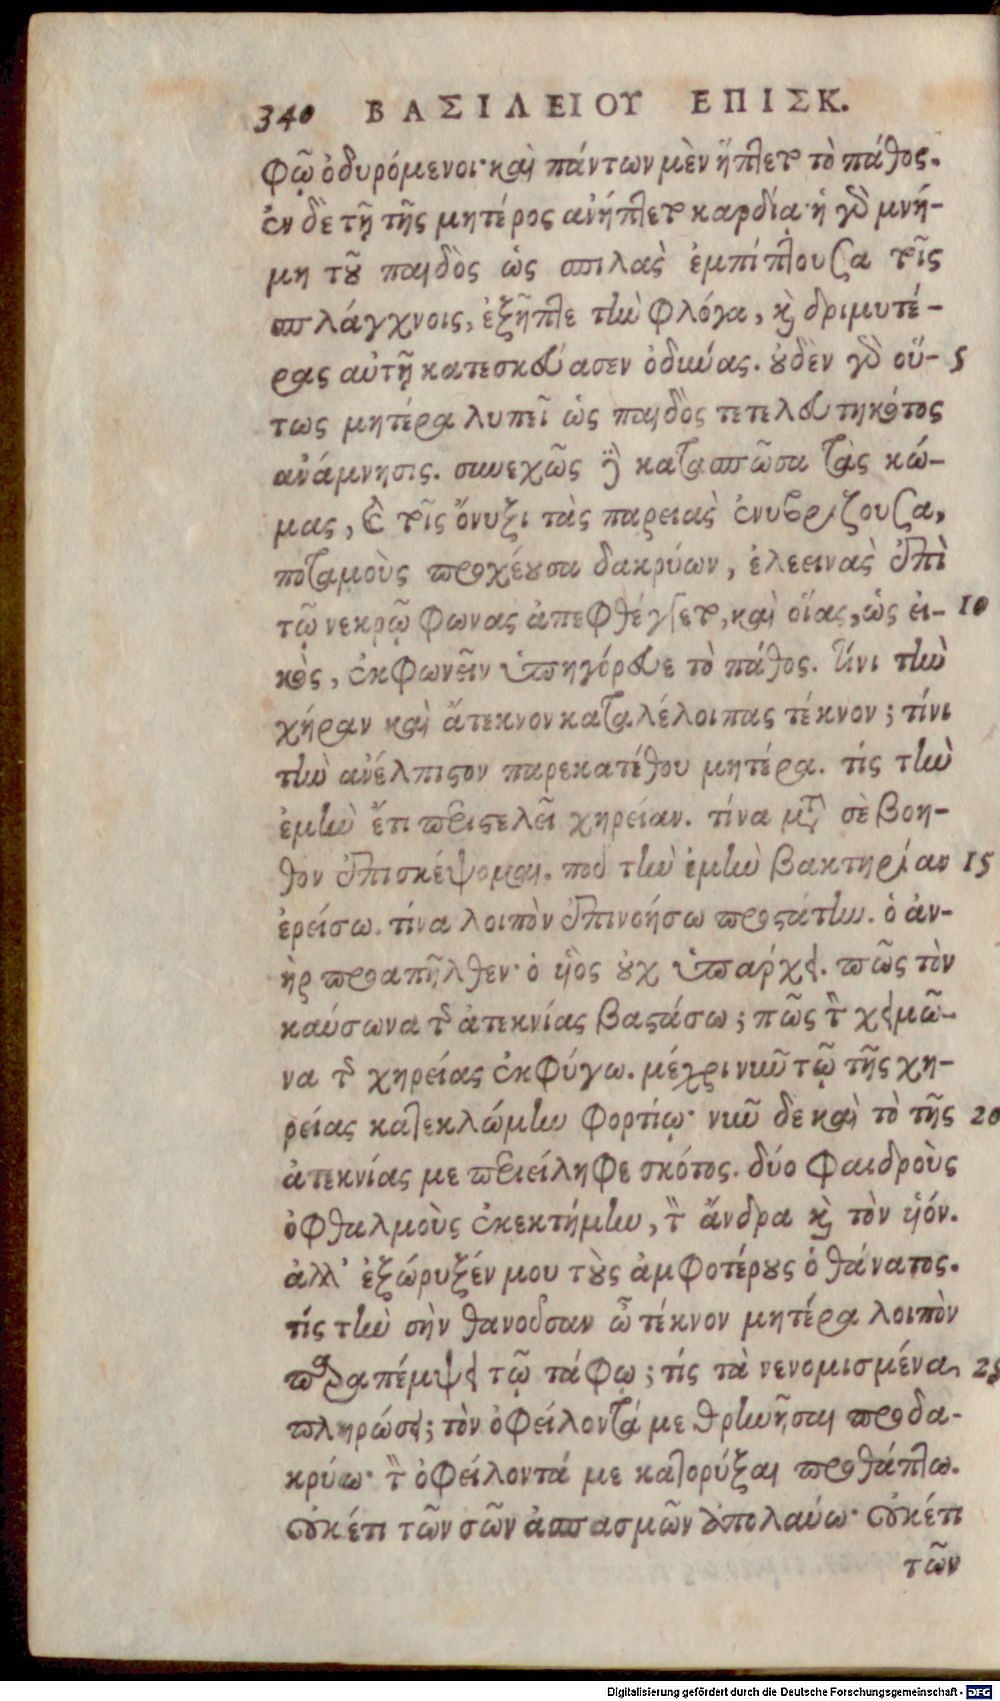 340 ΒΑΣΙΛΕΙΟΥ ΕΠΙΣΚ.
φῷ ὀδυρόμενοι· καὶ πάντων μὲν ἥπτετο τὸ πάθος.
ἐν δὲ τῇ τῆς μητέρος ἀνήπτετο καρδίᾳ· ἡ γὰρ μνή-
μη τοῦ παιδὸς ὡς σπιλὰς ἐμπίπτουσα τοῖς
σπλάγχνοις, ἐξῆπτε τὴν φλόγα, καὶ δριμυτέ-
ρας αὐτῇ κατεσκεύασεν ὀδύνας. οὐδὲν γὰρ οὕ- 5
τως μητέρα λυπεῖ ὡς παιδὸς τετελευτηκότος
ἀνάμνησις. συνεχῶς οὖν κατασπῶσα τὰς κό-
μας, καὶ τοῖς ὄνυξι τὰς παρειὰς ἐνυβρίζουσα,
ποταμοὺς προχέουσα δακρύων, ἐλεεινὰς ἐπὶ
τῷ νεκρῷ φωνὰς ἀπεφθέγγετο, καὶ οἵας, ὡς εἰ- 10
κὸς, ἐκφωνεῖν ὑπηγόρευε τὸ πάθος. τίνι τὴν
χήραν καὶ ἄτεκνον καταλέλοιπας τέκνον; τίνι
τὴν ἀνέλπιστον παρεκατέθου μητέρα. τίς τὴν
ἐμὴν ἔτι περιστελεῖ χηρείαν. τίνα μετὰ σὲ βοη-
θὸν ἐπισκέψομαι. ποῦ τὴν ἐμὴν βακτηρίαν 15
ἐρείσω. τίνα λοιπὸν ἐπινοήσω προστάτην. ὁ ἀν-
ὴρ προαπῆλθεν· ὁ υἱὸς οὐχ ὑπάρχει. πῶς τὸν
καύσωνα τῆς ἀτεκνίας βαστάσω; πῶς τὸν χειμῶ-
να τῆς χηρείας ἐκφύγω. μέχρι νῦν τῷ τῆς χη-
ρείας κατεκλώμην φορτίῳ· νῦν δὲ καὶ τὸ τῆς 20
ἀτεκνίας με περιείληφε σκότος. δύο φαιδροὺς
ὀφθαλμοὺς ἐκεκτήμην, τὸν ἄνδρα καὶ τὸν υἱόν.
ἀλλ' ἐξώρυξέν μου τοὺς ἀμφοτέρους ὁ θάνατος.
τίς τὴν σὴν θανοῦσαν ὦ τέκνον μητέρα λοιπὸν
παραπέμψει τῷ τάφῳ; τίς τὰ νενομισμένα 25
πληρώσει; τὸν ὀφείλοντά με θρηνῆσαι προδα-
κρύω· τὸν ὀφείλοντά με κατορύξαι προθάπτω.
οὐκέτι τῶν σῶν ἀσπασμῶν ἀπολαύω· οὐκέτι
τῶν
Digitalisierung gefördert durch die Deutsche Forschungsgemeinschaft - DFG